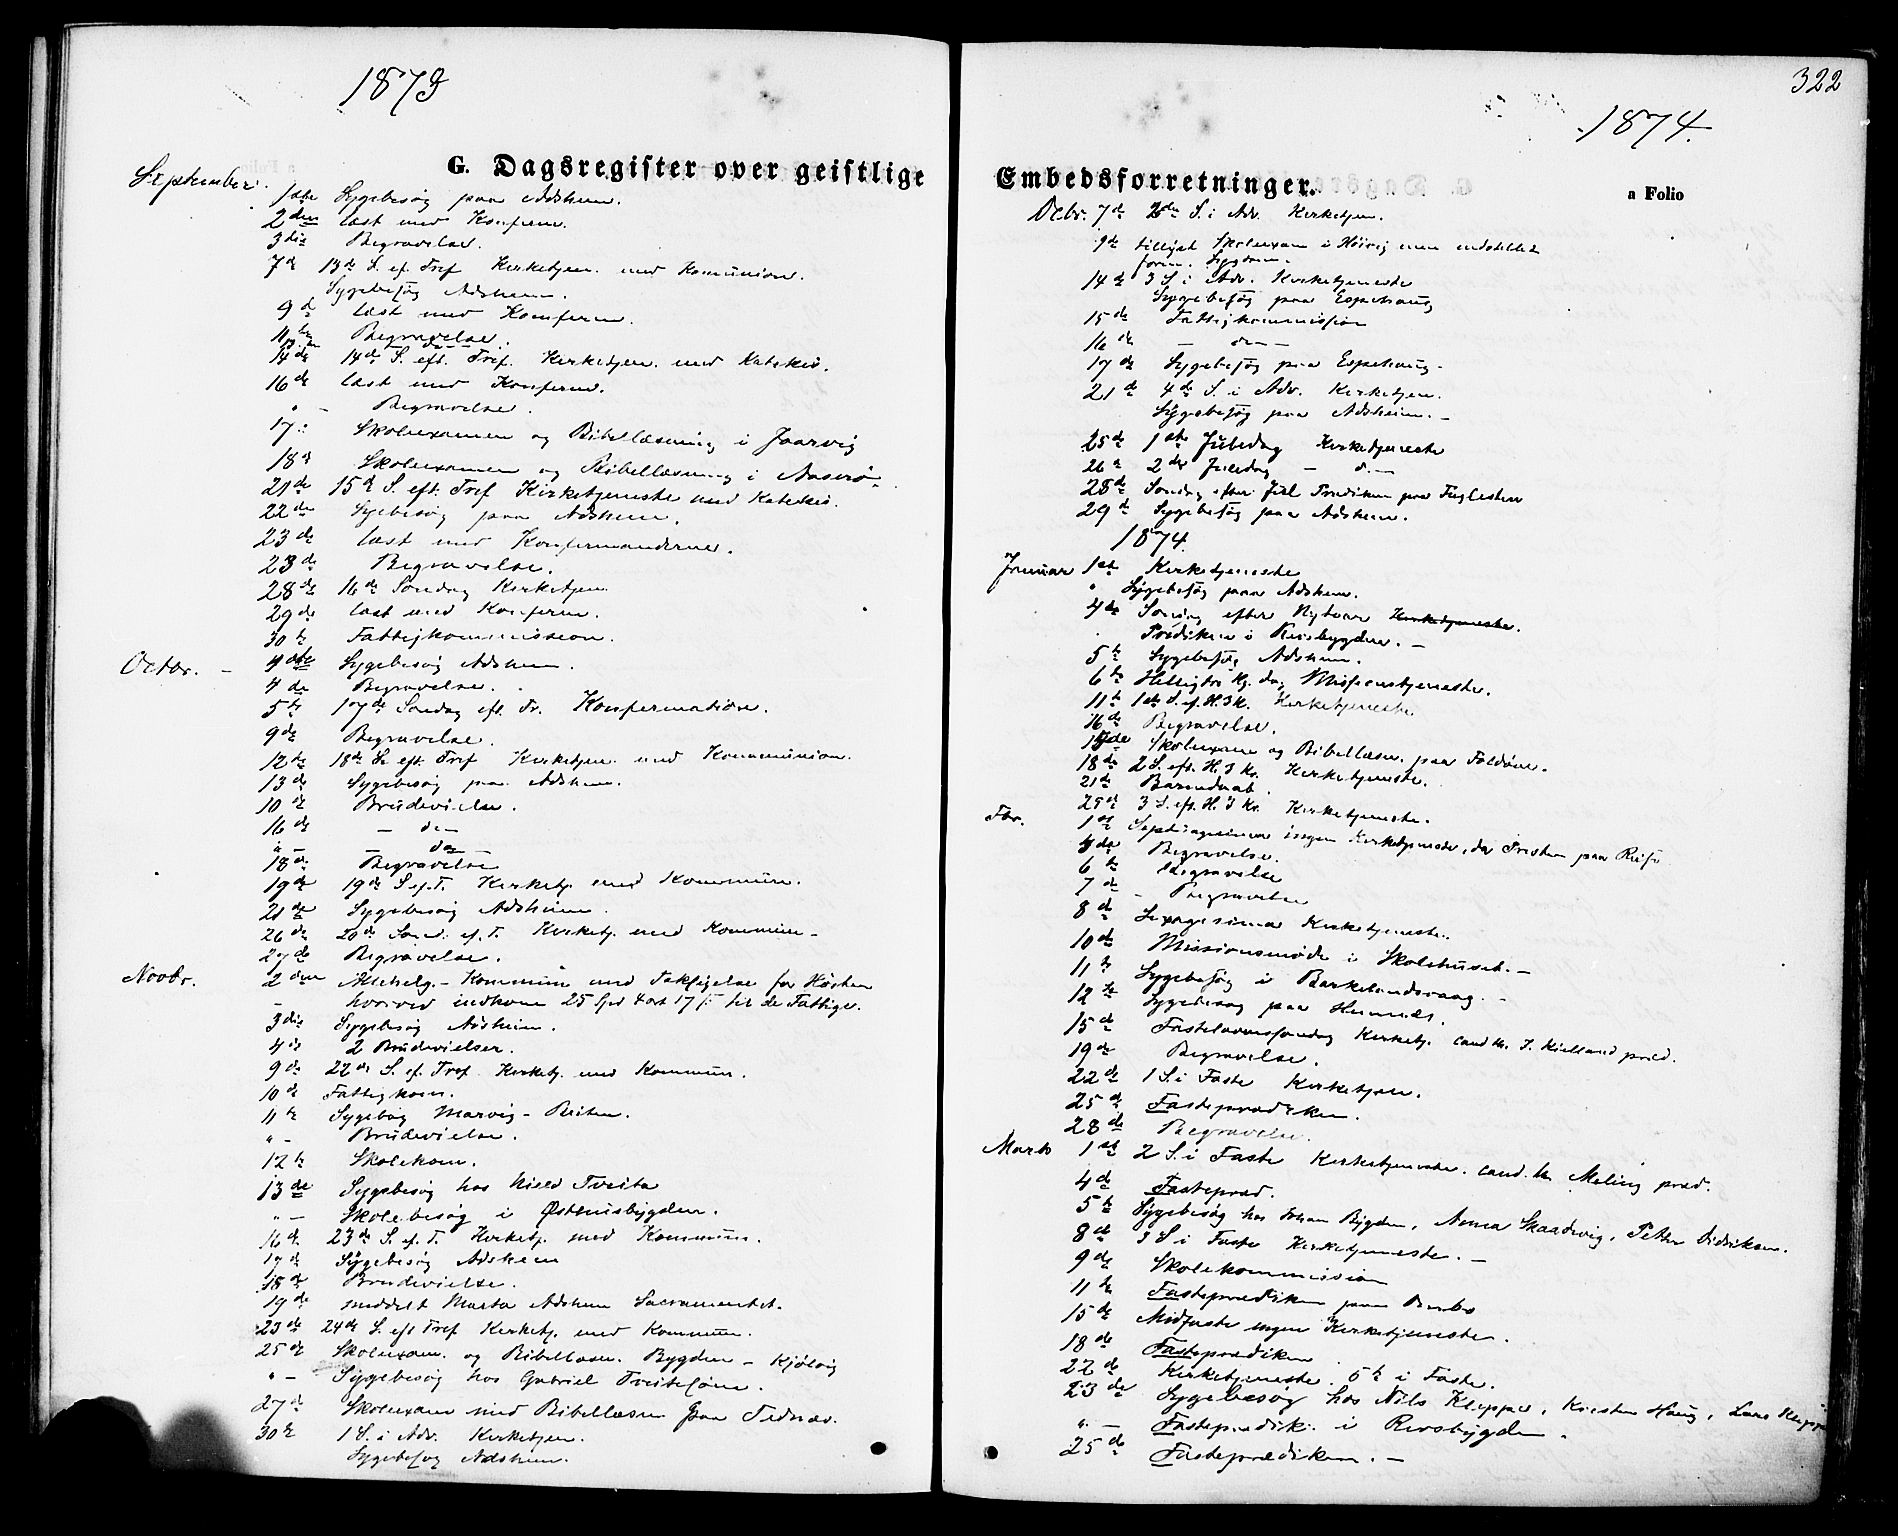 1873
G. Dagsregister over geistlige
September. 1ste Sygebesøg paa Adsheim.
2den læst med Konferm.
3die Begravelse.
7de 13de S. ef. Tref Kirketjen. med Komunion.
Sygebesøg Adsheim.
9de læst med Konferm.
11te Begravelse.
14de 14de S. eft. Tref. Kirketjen. med Katekis.
16de læst med Konferm.
" - Begravelse.
17: Skolexamen og Bibellæsning i Jaarvig
18de Skolexamen og Bibellæsning i
21de 15de S. eft. Tref Kirketjeneste med Katekis.
22de Sygebesøg paa Adsheim.
23de læst med Konfermanderne.
23de Begravelse.
28de 16de Søndag Kirketjen.
29de læst med Konferm.
30te Fattigkommission.
Octbr. - Sygebesøg Adsheim.
4de Begravelse.
5te 17de Søndag eft. Tr. Konfermation.
9de Begravelse.
12te 18de S. eft. Tref Kirketjen. med Kommunion.
13de Sygebesøg paa Adsheim.
10de Brudevielse.
16de - do -
" - - do -
18de Begravelse
19de 19de S. ef. T. Kirketj. med Kommun.
21de Sygebesøg Adsheim.
26de 20de Sønd. ef. T. Kirketj. med Kommun -
27de Begravelse.
Novbr. 2den Allehelg. - Kommun med Taksigelse for Høsten
- hvorved indkom 25 Spd 4 ort 17 s til de Fattige.
3die Sygebesøg Adsheim.
4de 2 Brudevielser.
9de 22de S. ef. Tref. Kirketj. med Kommun.
10de Fattigkom.
11te Sygebsøg Marvig -
" - Brudevielse.
12te Skolekom.
13de Sygebesøg hos Niels Tveita
" - Skolebesøg i Østhusbygden.
16de 23de S. ef. T. Kirketj. med Kommun.
17de Sygebesøg Adsheim
18de Brudevielse.
19de meddelt Marta Adsheim Sacramentet.
23de 24de S. eft Tref Kirketj. med Kommun.
25de Skolexam. og Bibellæsn. Bygden - Kjølvig
" - Sygebesøg hos Gabriel
27de Skolexam med Bibellæsn paa
30te 1 S. i Adv. Kirketjen.
Sygebesøg Adsheim.
322
1874.
Embedsforretninger.
a Folio
Decbr. 7de 2den S. i Adv. Kirketjen.
9de tillyst Skolexam i Høivig men indstillet
form. Sygdom.
14de 3 S. i Adv. Kirketjeneste
Sygebesøg paa Espehaug
15de Fattigkommission
16de - do -
17de Sygebesøg paa Espehaug -
21de 4de S. i Adv. Kirketjen.
Sygebesøg paa Adsheim. -
25de 1ste Juledag Kirketjeneste
26de 2den Juledag - do -
28de Søndag efter Jul Prædiken paa Fuglesten
29de Sygebesøg paa Adsheim.
1874.
Januar 1ste Kirketjeneste
" Sygebesøg paa Adsheim.
4de Søndag efter Nytaar Kirketjeneste.
Prædiken i Revsbygden. -
5te Sygebesøg Adsheim.
6te Hellig tre Kg. dag Missionstjeneste.
11te 1ste S. ef. H. 3 K. Kirketjeneste.
16de Begravelse.
17de Skolexam og Bibellæsn. paa Foldøen.
18de 2 S. eft. H. 3 K. Kirketjeneste.
21de Barnedaab.
25de 3 S. eft. H. 3 K. Kirketjeneste.
Feb. 1ste Septuagesima ingen Kirketjeneste, da Presten paa Reise
Begravelse.
6te Begravelse
7de - Begravelse
8de Sexagesima Kirketjeneste.
10de Missionsmøde i Skolehuset. -
11te Sygebesøg i Barkelandsvaag. -
12te Sygebesøg paa
15de Fastelavnssøndag Kirketj. cand. th. J. Kielland præd.
19de Begravelse.
22de 1 S. i Faste Kirketjen.
25de Fasteprædiken.
28de Begravelse.
Marts 1ste 2 S. i Faste Kirketjeneste. cand. th. Meling præd.
4de Fastepræd.
5te Sygebesøg hos Johan Bygden, Anna Skaadevig, Petter Didriksen.
8de 3 S i Faste Kirketjeneste. -
9de Skolekommission
11te Fasteprædiken paa
15de Midfaste ingen Kirketjeneste.
18de Fasteprædiken
22de Kirketjeneste. 5te i Faste.
23de Sygebesøg hos Nils Kleppe, Kirsten Haug, Lars Kleppe
" - Fasteprædik. i Revsbygden.
25de Fasteprædiken. -